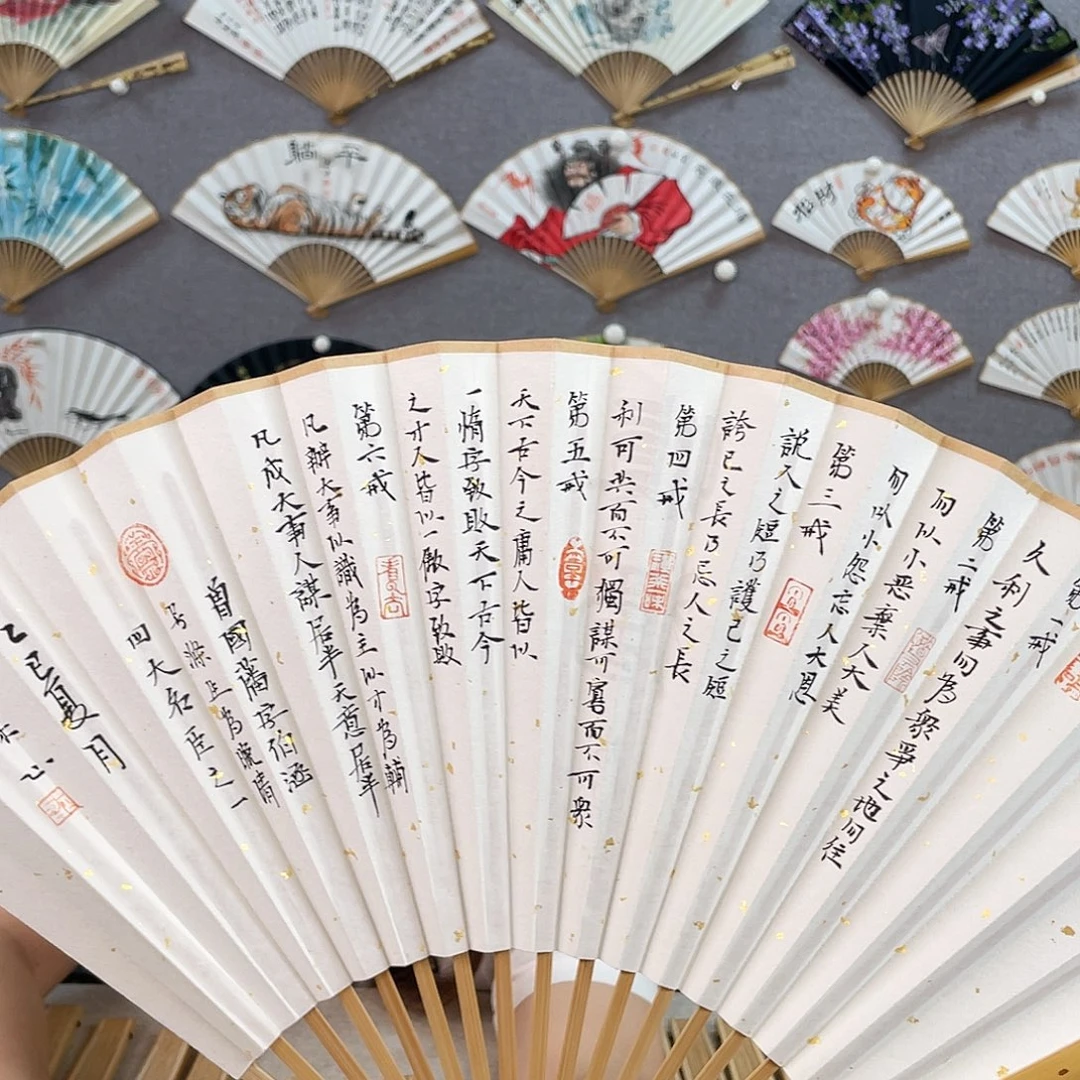 躺平
招財
第一戒
久利之事勿為眾爭之地勿往
第二戒
勿以小惡棄人大美
勿以小怨忘人大恩
第三戒
説人之短乃護己之短
誇己之長乃忌人之長
第四戒
利可共而不可獨謀可寡而不可眾
第五戒
天下古今之庸人皆以
一惰字致敗天下古今
之才人皆以一傲字致敗
第六戒
凡辦大事以識為主以才為輔
凡成大事人謀居半天意居半
曾國藩字伯涵
号滌生為晚清
四大名臣之一
乙巳夏月